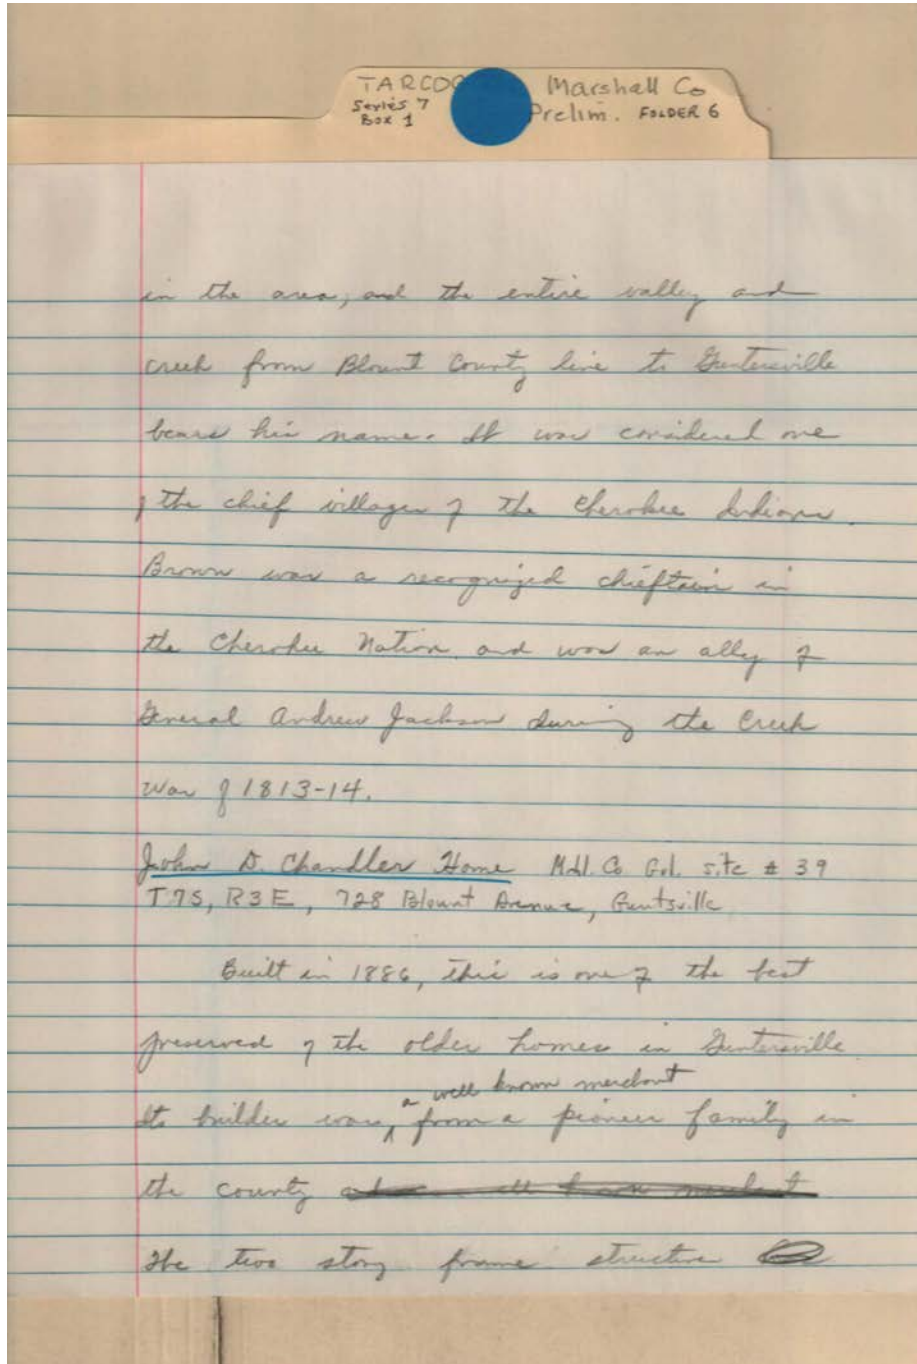 TARCOG Marshall Co
Series 7 Prelim. FOLDER 6
Box 1
in the area, and the entire valley and
creek from Blount County line to Guntersville
bears his name. It was considered one
of the chief villages of the Cherokee Indians.
Brown was a recognized chieftain in
the Cherokee Nation and was an ally of
General Andrew Jackson during the Creek
War of 1813-14.
John D. Chandler Home Mdl. Co. site # 39
T7S, R3E, 728 Blount Avenue, Guntsville
Built in 1886, this is one of the best
preserved of the older homes in Guntersville
a well known merchant
Its builder was from a pioneer family in
the county
The two story frame structure